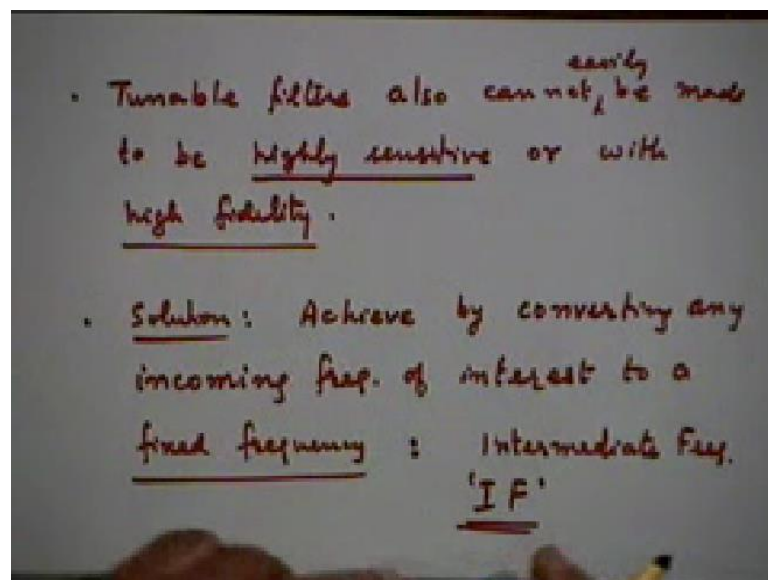 easily
• Tunable filters also cannot, be made
to be highly sensitive or with
high fidelity.
• Solution: Achieve by converting any
incoming freq. of interest to a
fixed frequency : Intermediate Freq.
'IF'